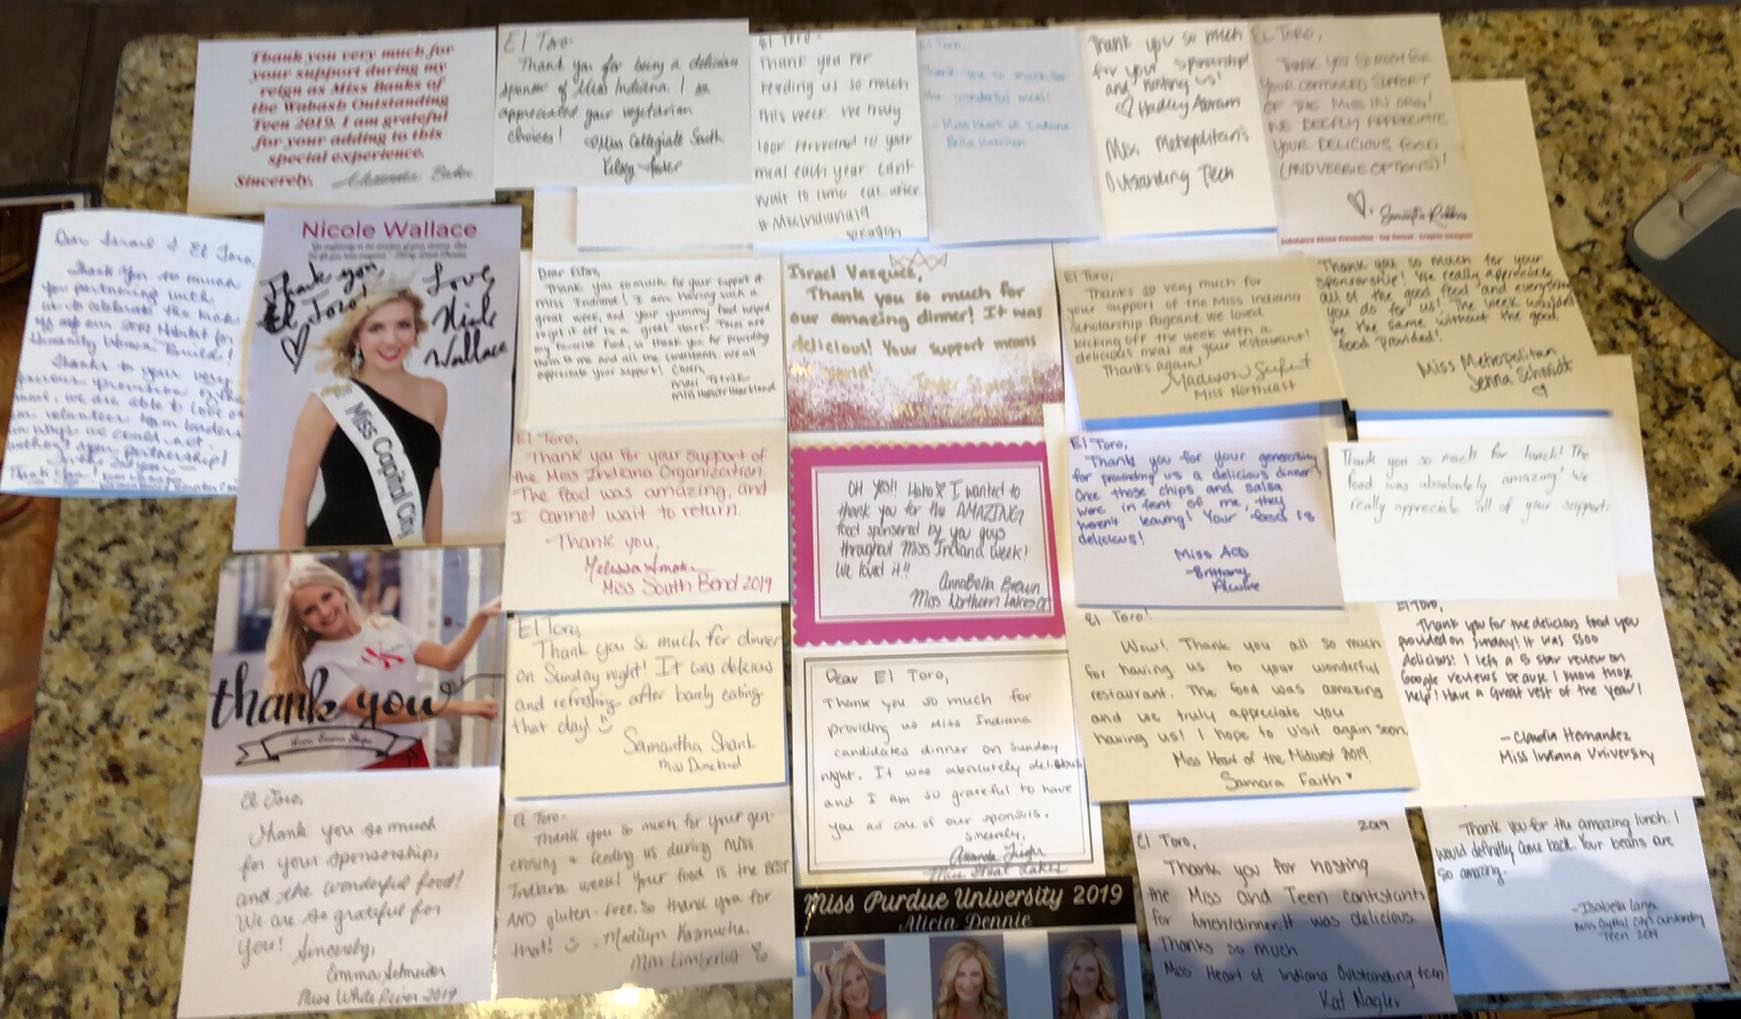 Thank you very much for
your support during my
reign as Miss Banks of
the Wabash Outstanding
Teen 2019. I am grateful
for your adding to this
special experience.
Sincerely,
El Toro-
Thank you for being a delicious
sponsor of Miss Indiana. I so
appreciated your vegetarian
choices!
Miss Collegiate South
Kelsey
El Toro-
Thank you for
feeding us so much
this week. We truly
look forward to your
meal each year. Can't
wait to come eat after
#MissIndiana19
El Toro,
Thank you so much for
the wonderful meal!
-Miss Heart of Indiana
Thank you so much
for your sponsorship
and hosting us!
Hadley Abram
Miss Metropolitan's
Outstanding Teen
EL TORO,
THANK YOU SO MUCH FOR
YOUR CONTINUED SUPPORT
OF THE MISS IN ORG!
WE DEEPLY APPRECIATE
YOUR DELICIOUS FOOD
(AND VEGGIE OPTIONS)!
Samantha Robbins
Substance Abuse Prevention - Tap Dancer - Graphic Designer
Dear Israel & El Toro,
Thank you so much
for partnering with
us to celebrate the
of our 2019 Habitat for
Humanity Women Build!
Thanks to your very
generous provision of
we are able to love on
our volunteer team leaders
in ways we could not
without your partnership!
Thank you!
Nicole Wallace
Thank you,
El Toro!
Love,
Nicole
Wallace
Miss Capital City
Dear El Toro,
Thank you so much for your support of
Miss Indiana! I am having such a
great week, and your yummy food helped
to get it off to a great start. Tacos are
my favorite food, so thank you for providing
them to me and all the contestants. We all
appreciate your support! Cheers,
Miss Honor Heartland
Israel Vasquez,
Thank you so much for
our amazing dinner! It was
delicious! Your support means
world!
El Toro,
Thanks so very much for
your support of the Miss Indiana
Scholarship Pageant. We loved
kicking off the week with a
delicious meal at your restaurant!
Thanks again!
Madison
Miss Northeast
Thank you so much for your
sponsorship! We really appreciate
all of the good food and everything
you do for us! The week wouldn't
be the same without the good
food provided!
Miss Metropolitan
Jenna Schmidt
El Toro,
Thank you for your support of
the Miss Indiana Organization.
The food was amazing, and
I cannot wait to return.
Thank you,
Melissa
Miss South Bend 2019
OH YES!! Haha I wanted to
thank you for the AMAZING
food sponsered by you guys
throughout Miss Indiana week!
We loved it!!
AnnaBella Brown
Miss Northern Lakes
El Toro,
Thank you for your generosity
for providing us a delicious dinner.
Once those chips and salsa
were in front of me, they
weren't leaving! Your food is
delicious!
-Brittany
Thank you so much for lunch! The
food was absolutely amazing! We
really appreciate all of your support.
thank you
El Toro,
Thank you so much for dinner
on Sunday night! It was delicious
and refreshing after barely eating
that day!
Samantha Shank
Miss Duneland
Dear El Toro,
Thank you so much for
providing us Miss Indiana
candidates dinner on Sunday
night. It was absolutely delicious
and I am so grateful to have
you as one of our sponsors.
Sincerely,
El Toro!
Wow! Thank you all so much
for having us to your wonderful
restaurant. The food was amazing
and we truly appreciate you
having us! I hope to visit again soon.
Miss Heart of the Midwest 2019,
Samara Faith
El Toro,
Thank you for the delicious food you
provided on Sunday! It was sooo
delicious! I left a 5 star review on
Google reviews because I know those
help! Have a Great rest of the year!
-Claudia Hernandez
Miss Indiana University
El Toro,
Thank you so much
for your sponsorship,
and the wonderful food!
We are so grateful for
you! Sincerely,
Emma
Miss White River 2019
El Toro-
Thank you so much for your gen-
erosity & feeding us during Miss
Indiana week! Your food is the BEST
AND gluten-free. So thank you for
that! -Madilyn
Miss Limberlost
Miss Purdue University 2019
Alicia Dennie
2019
El Toro,
Thank you for hosting
the Miss and Teen contestants
for lunch/dinner. It was delicious.
Thanks so much
Miss Heart of Indiana Outstanding Teen
Kat Nagler
Thank you for the amazing lunch. I
would definitly come back. Your beans are
so amazing.
-Isabella
Miss Capital City's Outstanding
Teen 2019